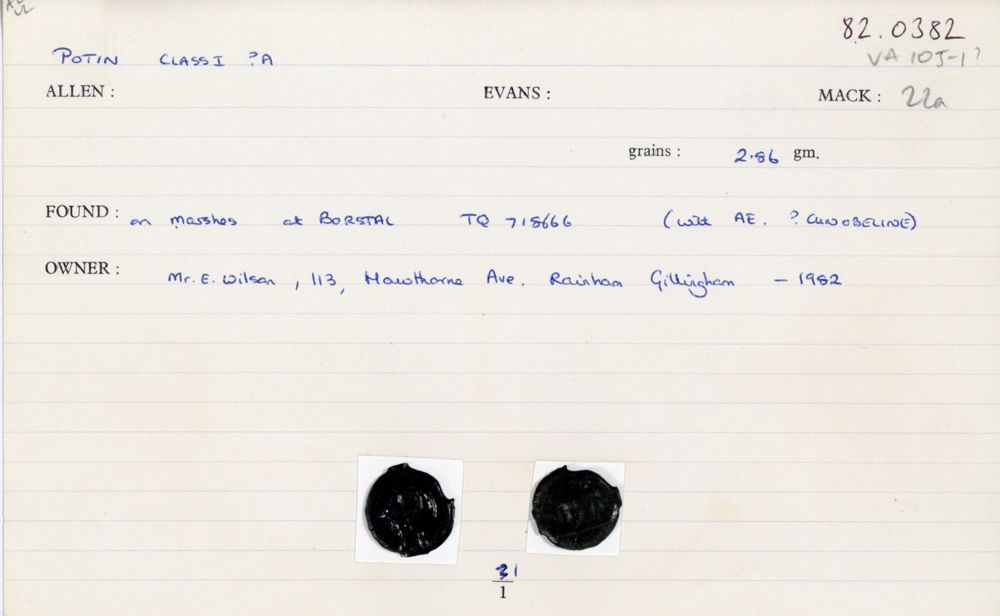 82.0382
POTIN CLASS I ?A VA 105-1?
ALLEN : EVANS : MACK : 22a
grains : 2.86 gm.
FOUND : on marshes at BORSTAL TQ 718666 (with AE. ? CUNOBELINE)
OWNER : Mr. E. Wilson, 113, Hawthorne Ave. Rainham Gillingham – 1982
31
1